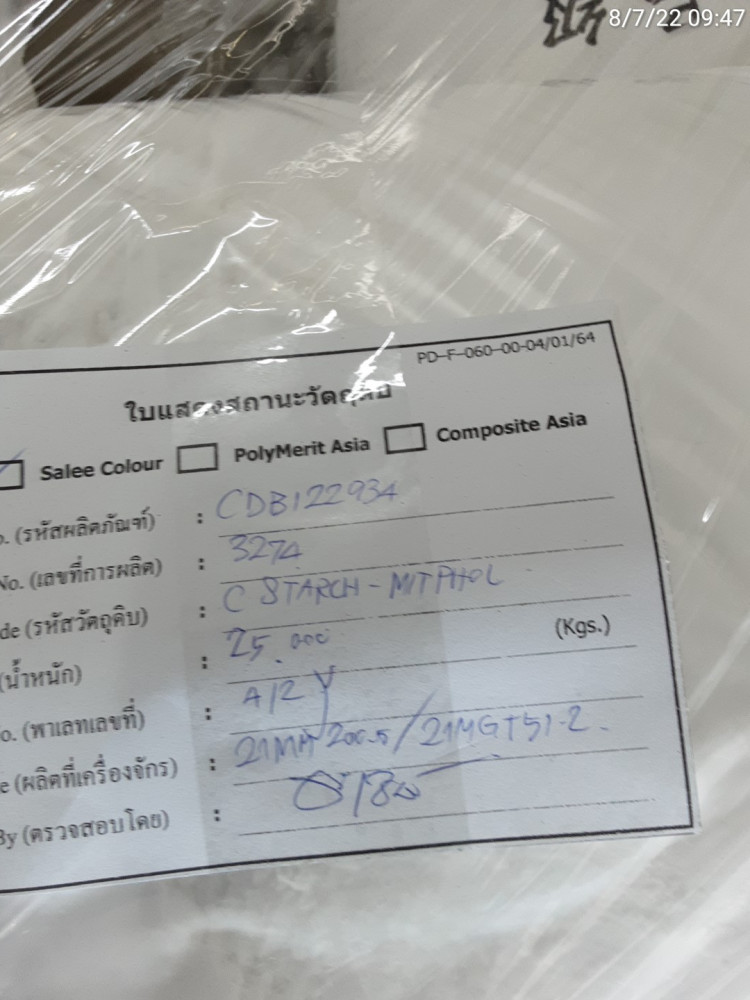 8/7/22 09:47
PD-F-060-00-04/01/64
ใบแสดงสถานะวัตถุดิบ
Salee Colour PolyMerit Asia Composite Asia
(รหัสผลิตภัณฑ์) : CDB122934
No. (เลขที่การผลิต) : 3274
de (รหัสวัตถุดิบ) : C STARCH - MITPHOL
(น้ำหนัก) : 25.000 (Kgs.)
o. (พาเลทเลขที่) : A/2
e (ผลิตที่เครื่องจักร) : /21MGT51-2.
By (ตรวจสอบโดย) :